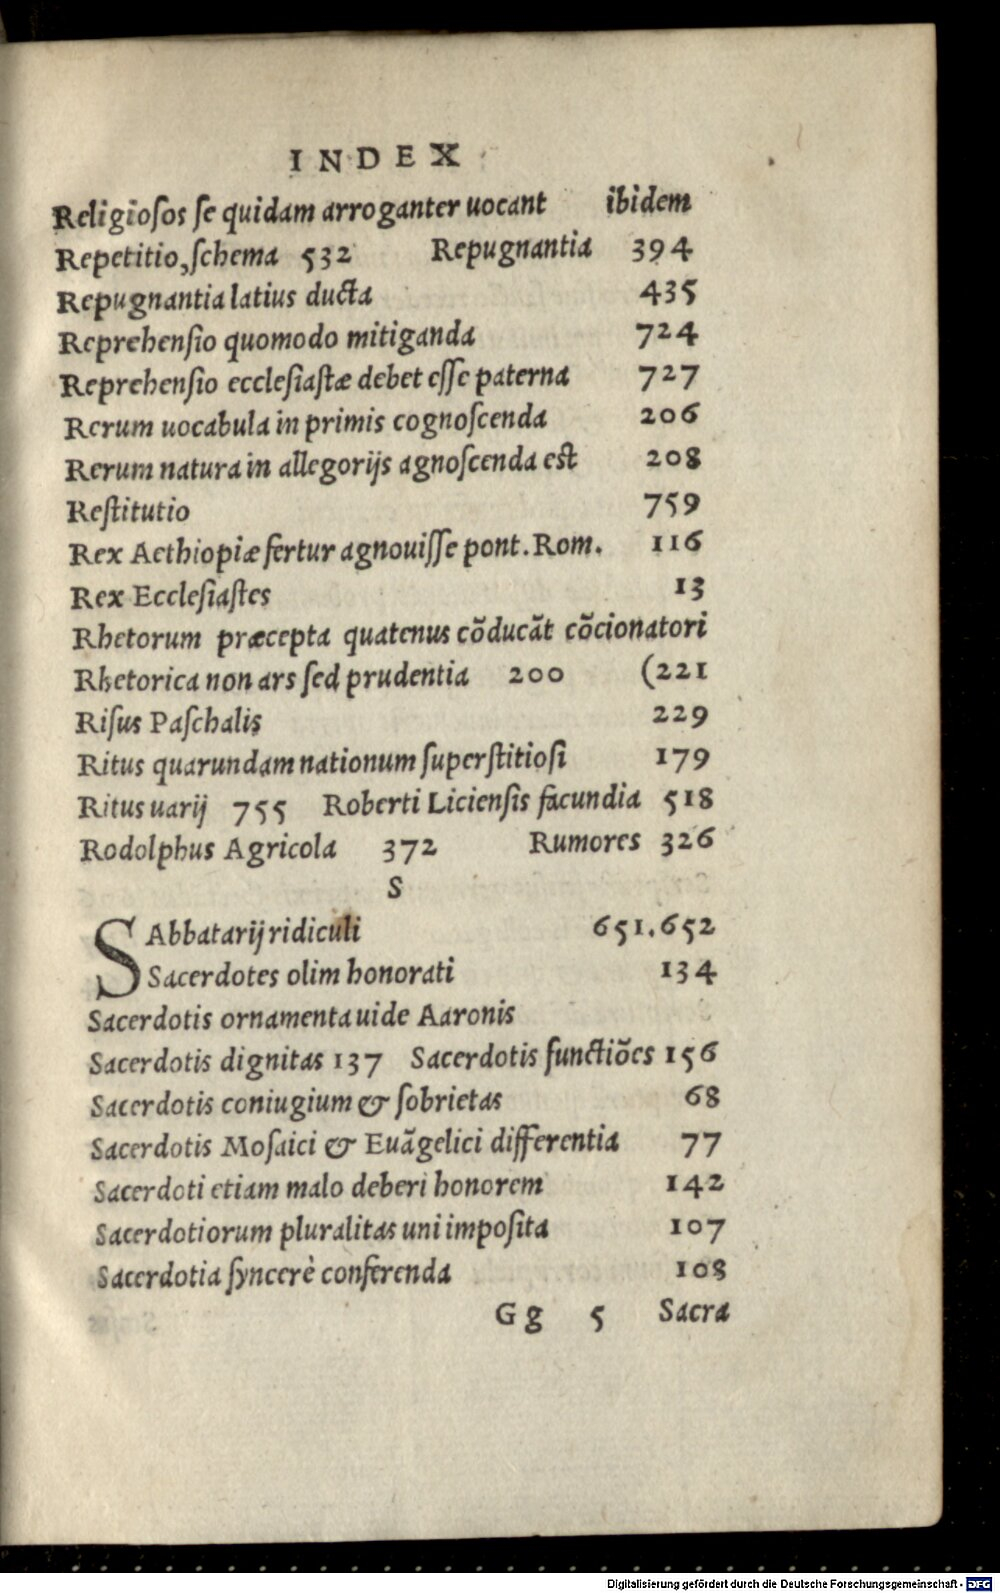 INDEX
Religiosos se quidam arroganter uocant ibidem
Repetitio, schema 532 Repugnantia 394
Repugnantia latius ducta 435
Reprehensio quomodo mitiganda 724
Reprehensio ecclesiastæ debet esse paterna 727
Rerum uocabula in primis cognoscenda 206
Rerum natura in allegorijs agnoscenda est 208
Restitutio 759
Rex Aethiopiæ fertur agnouisse pont. Rom. 116
Rex Ecclesiastes 13
Rhetorum præcepta quatenus cõducãt cõcionatori
Rhetorica non ars sed prudentia 200 (221
Risus Paschalis 229
Ritus quarundam nationum superstitiosi 179
Ritus uarij 755 Roberti Liciensis facundia 518
Rodolphus Agricola 372 Rumores 326
S
SAbbatarij ridiculi 651.652
Sacerdotes olim honorati 134
Sacerdotis ornamenta uide Aaronis
Sacerdotis dignitas 137 Sacerdotis functiões 156
Sacerdotis coniugium & sobrietas 68
Sacerdotis Mosaici & Euãgelici differentia 77
Sacerdoti etiam malo deberi honorem 142
Sacerdotiorum pluralitas uni imposita 107
Sacerdotia syncerè conferenda 108
Gg 5 Sacra
Digitalisierung gefördert durch die Deutsche Forschungsgemeinschaft - DFG